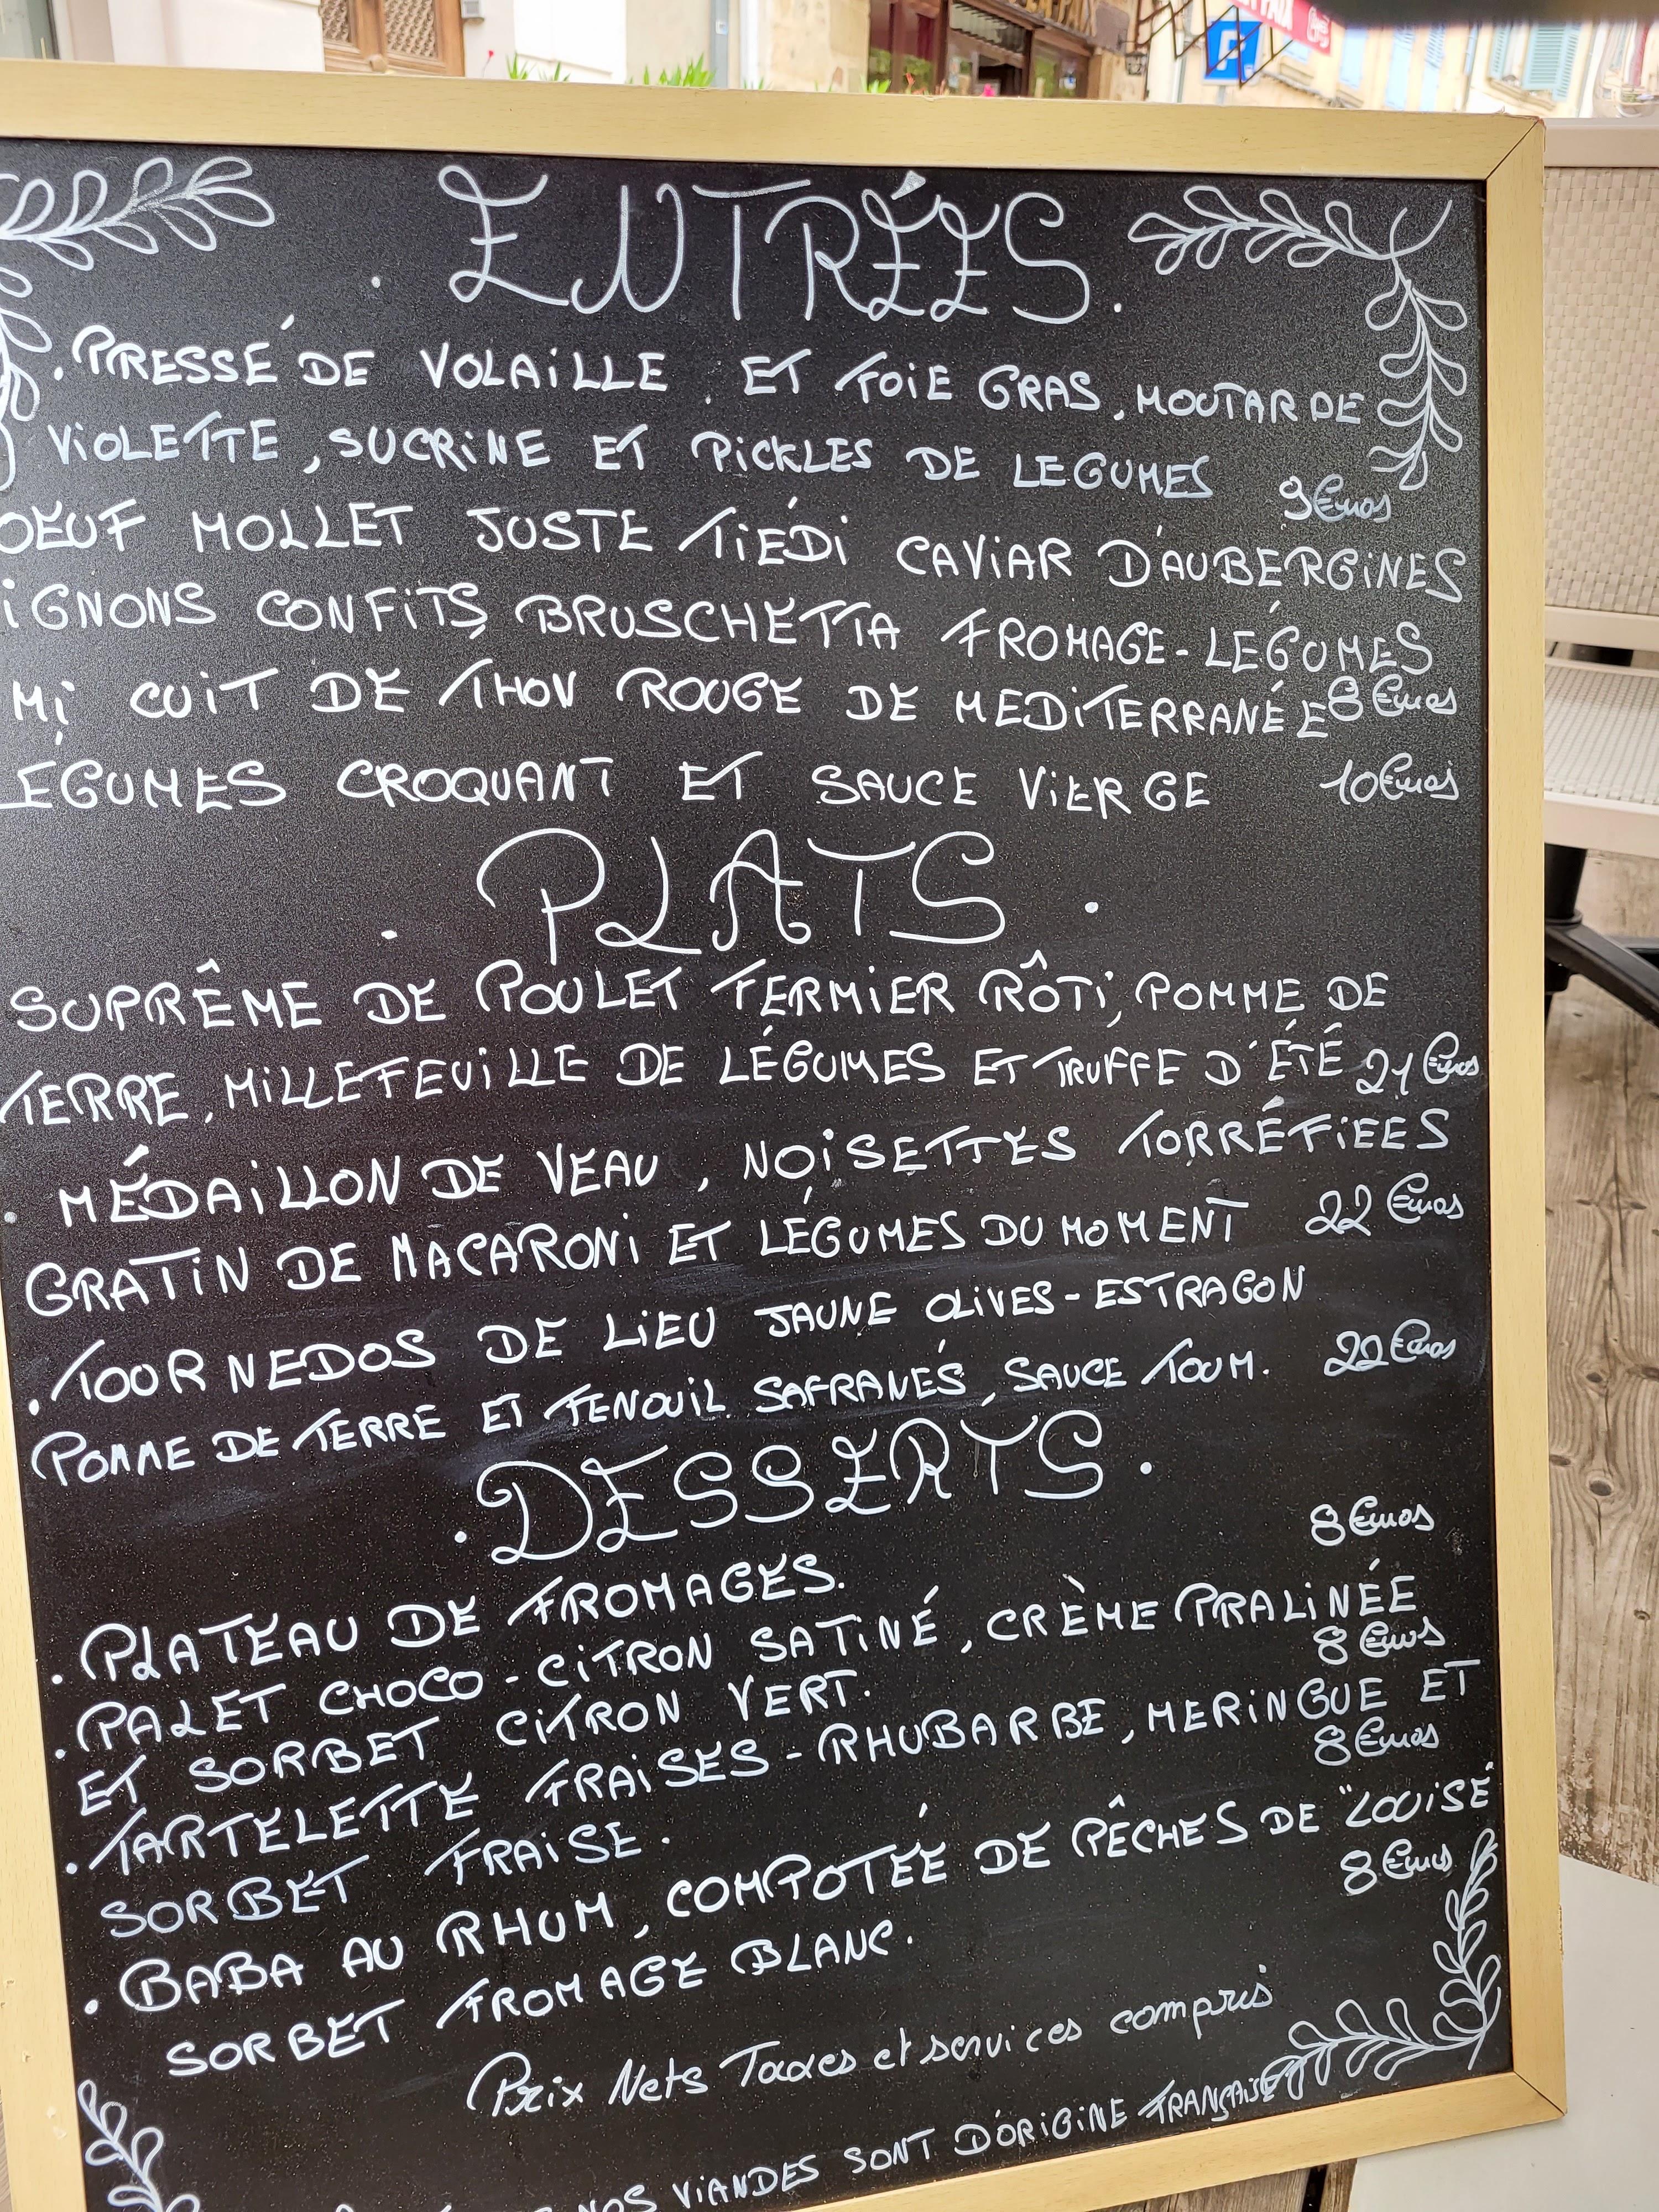 . ENTRÉES .
. PRESSÉ DE VOLAILLE, ET FOIE GRAS, MOUTARDE
VIOLETTE, SUCRINE ET PICKLES DE LEGUMES 9 Euros
OEUF MOLLET JUSTE TIÉDI CAVIAR D'AUBERGINES
IGNONS CONFITS, BRUSCHETTA FROMAGE-LÉGUMES
8 Euros
MI CUIT DE THON ROUGE DE MEDITERRANÉE
LEGUMES CROQUANT ET SAUCE VIERGE 10 Euros
. PLATS .
SUPRÊME DE POULET FERMIER RÔTI, POMME DE
TERRE, MILLEFEUILLE DE LÉGUMES ET TRUFFE D'ÉTÉ 21 Euros
. MÉDAILLON DE VEAU, NOISETTES TORRÉFIEES
GRATIN DE MACARONI ET LÉGUMES DU MOMENT 22 Euros
. TOURNEDOS DE LIEU JAUNE OLIVES-ESTRAGON
POMME DE TERRE ET FENOUIL SAFRANÉS, SAUCE TOUM. 22 Euros
. DESSERTS .
. PLATEAU DE FROMAGES. 8 Euros
. PALET CHOCO-CITRON SATINÉ, CRÈME PRALINÉE
ET SORBET CITRON VERT. 8 Euros
. TARTELETTE FRAISES-RHUBARBE, MERINGUE ET
SORBET FRAISE. 8 Euros
. BABA AU RHUM, COMPOTÉE DE PÊCHES DE "LOUISE"
SORBET FROMAGE BLANC. 8 Euros
Prix Nets Taxes et services compris
NOS VIANDES SONT D'ORIGINE FRANÇAISE